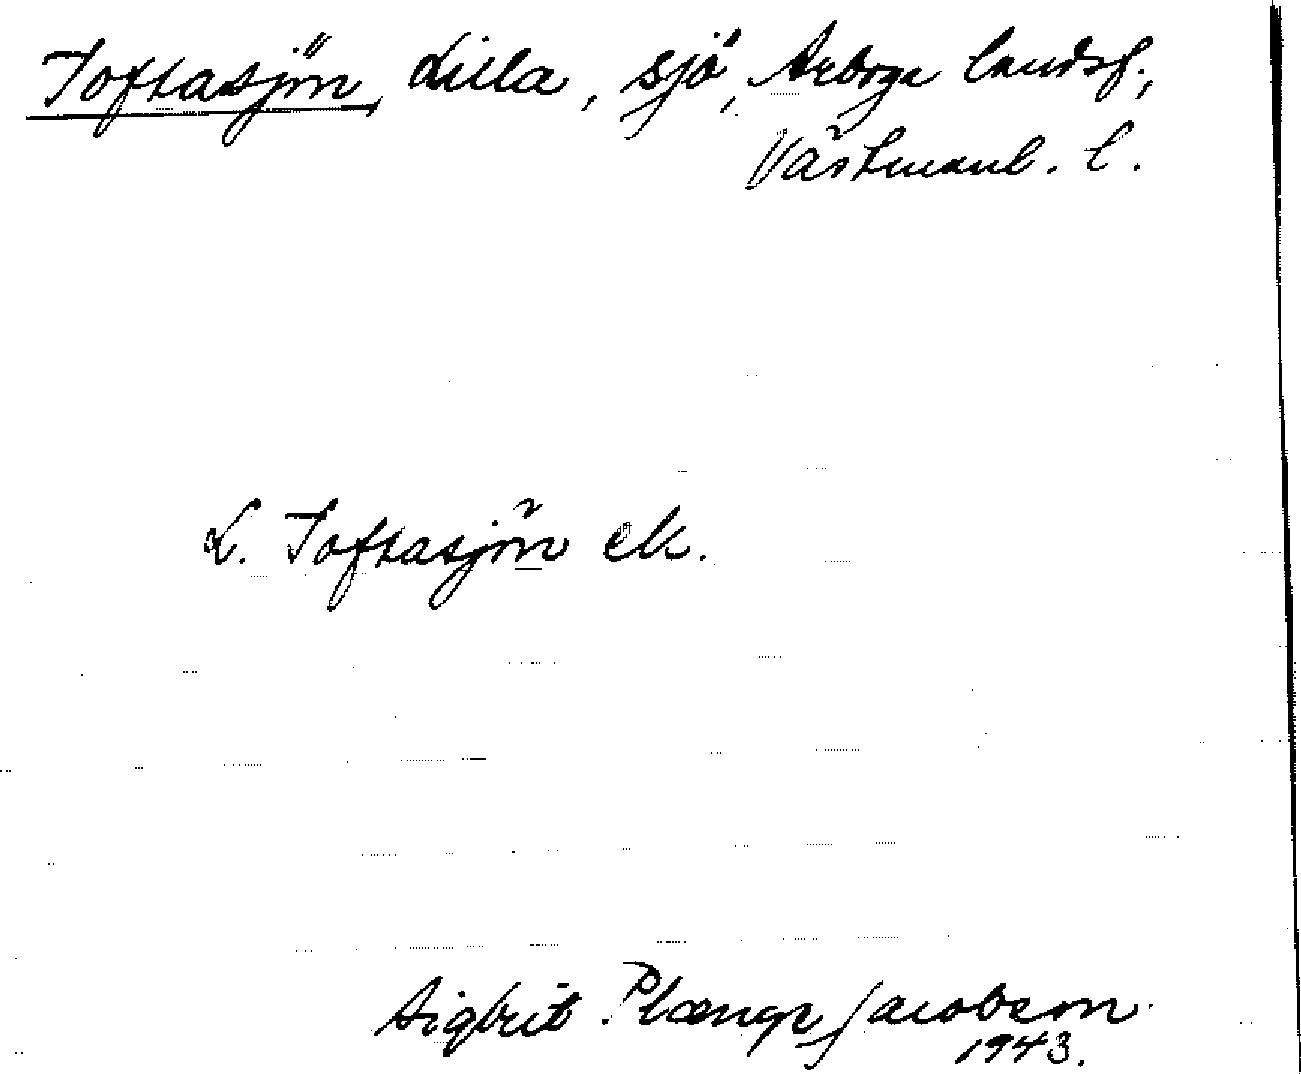 Toftasjön, Lilla, sjö, Arboga landsf.,
Västmanl. l.
L. Toftasjön ek.
Sigbrit Plænge Jacobson
1943.